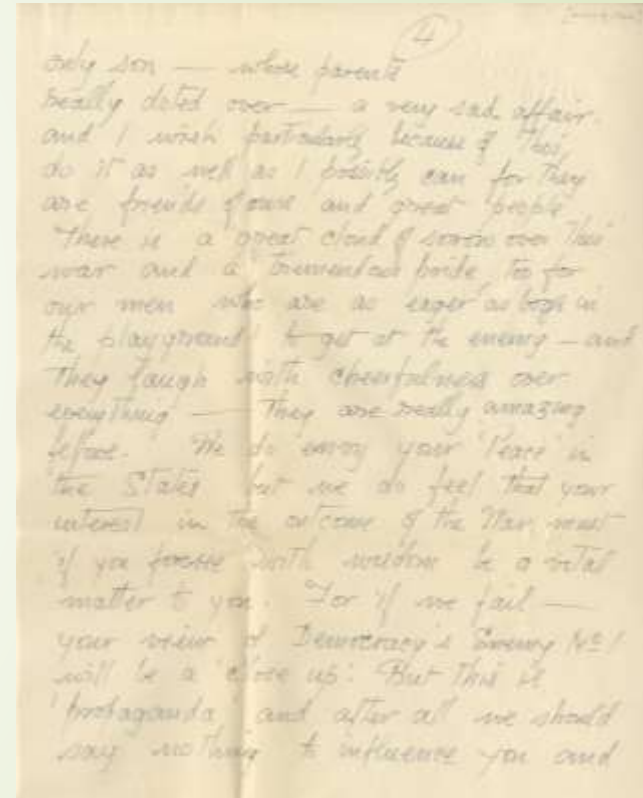 4
only son — whose parents
really doted over — a very sad affair.
and I wish particularly because of this,
do it as well as I possibly can for they
are friends of ours and great people
There is a great cloud of sorrow over this
war and a tremendous pride, too for
our men who are as eager as boys in
the playground to get at the enemy — and
They laugh with cheerfulness over
everything — They are really amazing
We do envy your 'Peace' in
the States but we do feel that your
interest in the outcome of the War must
if you foresee with wisdom be a vital
matter to you. For if we fail —
your view of Democracy's Enemy No 1
will be a 'close up'. But this is
'propaganda' and after all we should
say nothing to influence you and